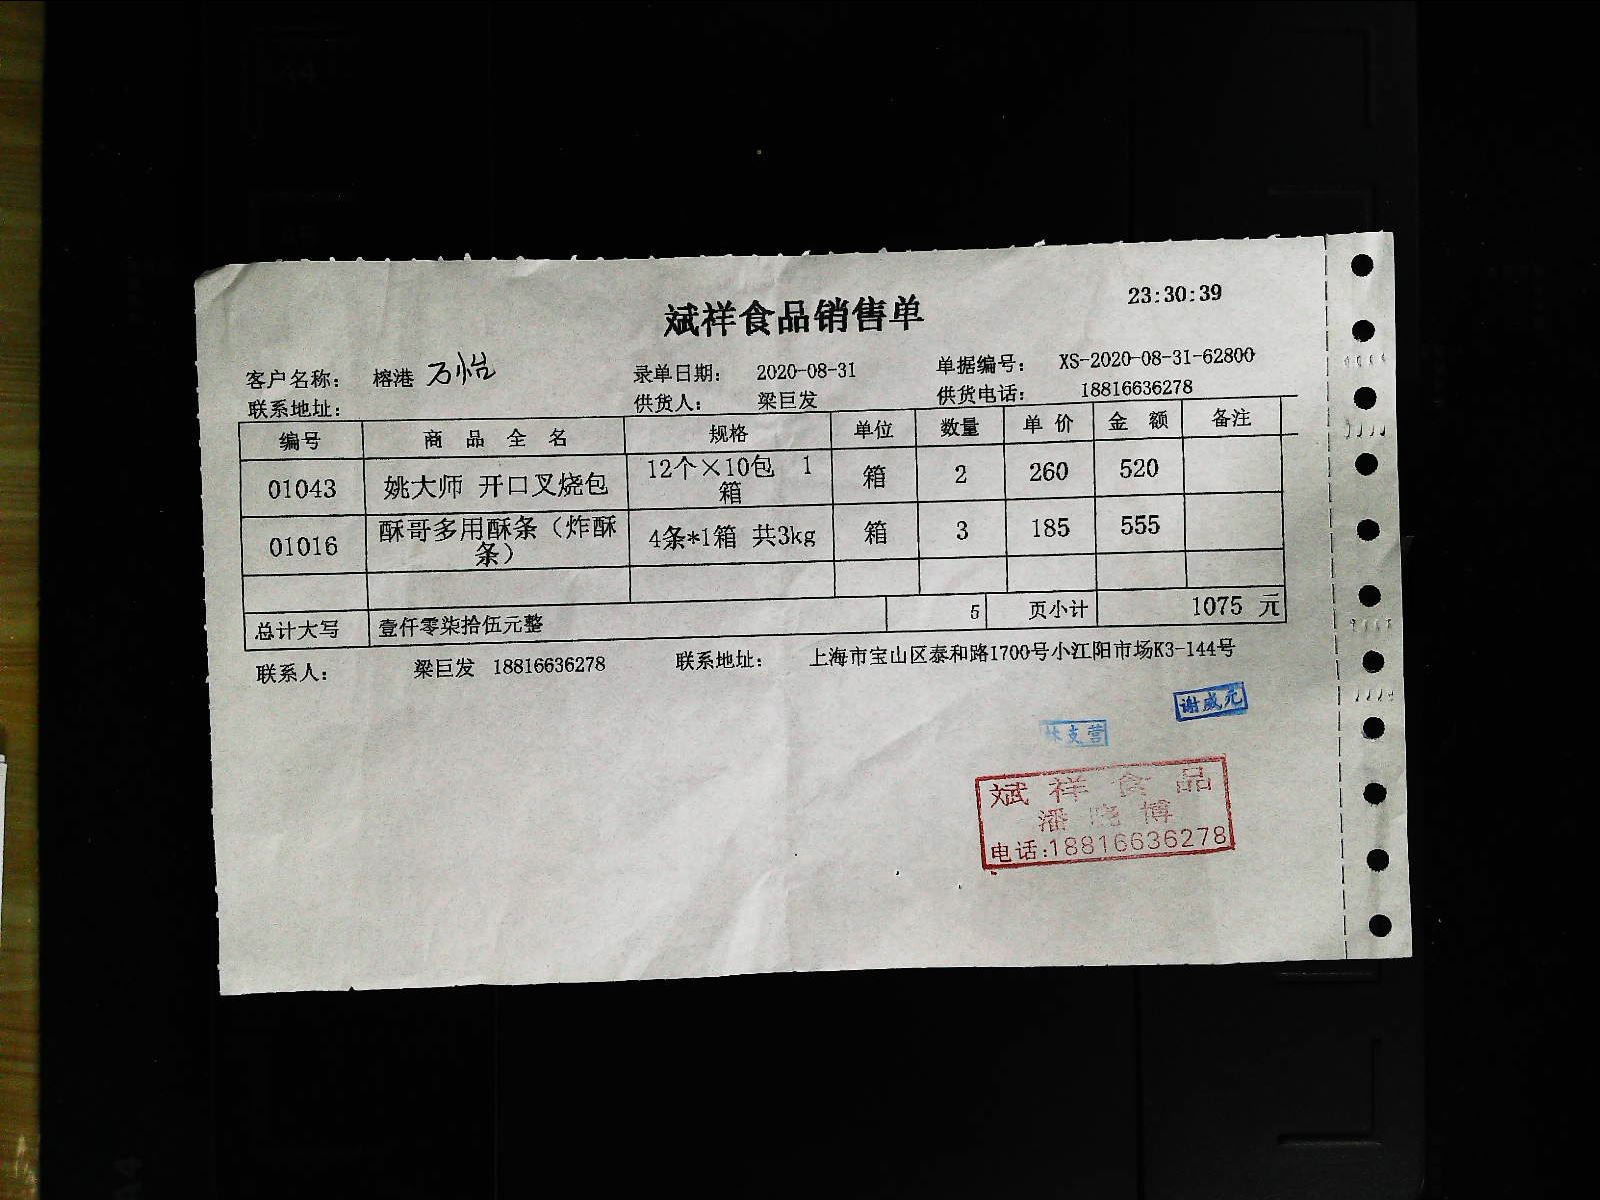 23:30:39
斌祥食品销售单
客户名称： 榕港 万怡 录单日期： 2020-08-31 单据编号： XS-2020-08-31-62800
联系地址： 供货人： 梁巨发 供货电话： 18816636278
编号 商 品 全 名 规格 单位 数量 单 价 金 额 备注
01043 姚大师 开口叉烧包 12个×10包 1箱 箱 2 260 520
01016 酥哥多用酥条（炸酥条） 4条*1箱 共3kg 箱 3 185 555
总计大写 壹仟零柒拾伍元整 5 页小计 1075 元
联系人： 梁巨发 18816636278 联系地址： 上海市宝山区泰和路1700号小江阳市场K3-144号
谢威元
斌祥食品
潘晓博
电话:18816636278